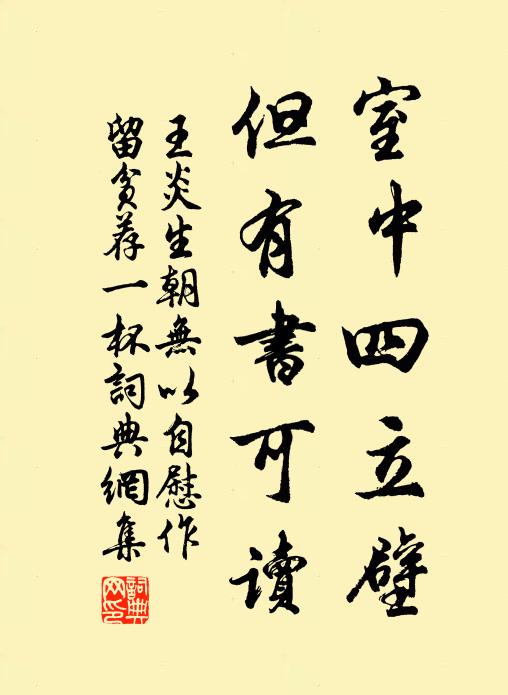 室中四立壁
但有書可讀
王炎生朝無以自慰作
留貧荐一杯詞典網集
詞典网印